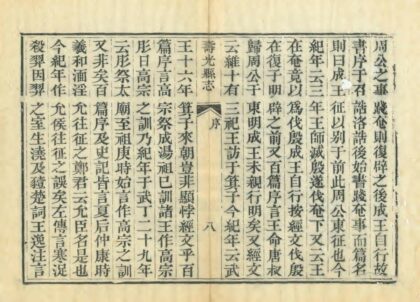 周公之事踐奄則復辟之後成王自行故
書序于召誥洛誥後始書踐奄事而篇名
則曰成王征以別于前此周公東征也今
紀年云三年王師滅殷遂伐奄下又云王
在奄竟以爲伐殷成王自行按經文伐殷
在復子明辟之前又百篇序言王命唐叔
歸周公于東明成王未親行明矣又經文
云維十有三祀王訪于箕子今紀年云武
壽光縣志
序
八
王十六年箕子來朝豈非顯悖經文乎百
篇序言高宗祭成湯祖己訓諸王作高宗
肜日高宗之訓乃紀年于武丁二十九年
云肜祭太廟至祖庚時始言作高宗之訓
又非矣百篇序及史記皆言夏后仲康時
羲和湎淫允往征之鄭君云允臣名是也
今紀年作允侯往征之誤矣左傳言寒浞
殺羿因羿之室生澆及豷楚詞王逸注言